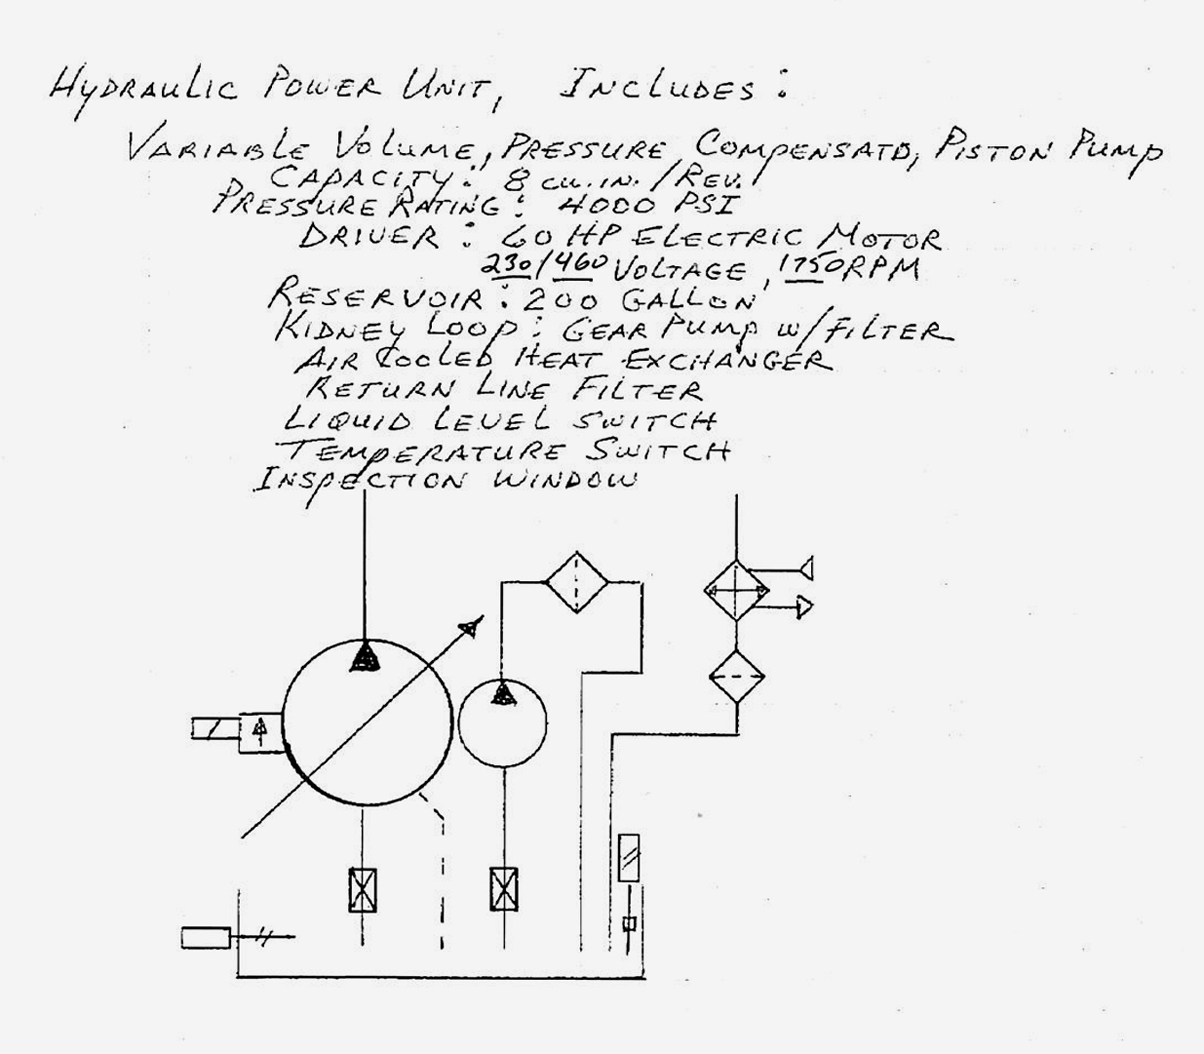 HYDRAULIC POWER UNIT, INCLUDES:
VARIABLE VOLUME, PRESSURE COMPENSATD, PISTON PUMP
CAPACITY: 8 CU. IN. / REV.
PRESSURE RATING: 4000 PSI
DRIVER: 60 HP ELECTRIC MOTOR
230/460 VOLTAGE, 1750 RPM
RESERVOIR: 200 GALLON
KIDNEY LOOP: GEAR PUMP W/FILTER
AIR COOLED HEAT EXCHANGER
RETURN LINE FILTER
LIQUID LEVEL SWITCH
TEMPERATURE SWITCH
INSPECTION WINDOW